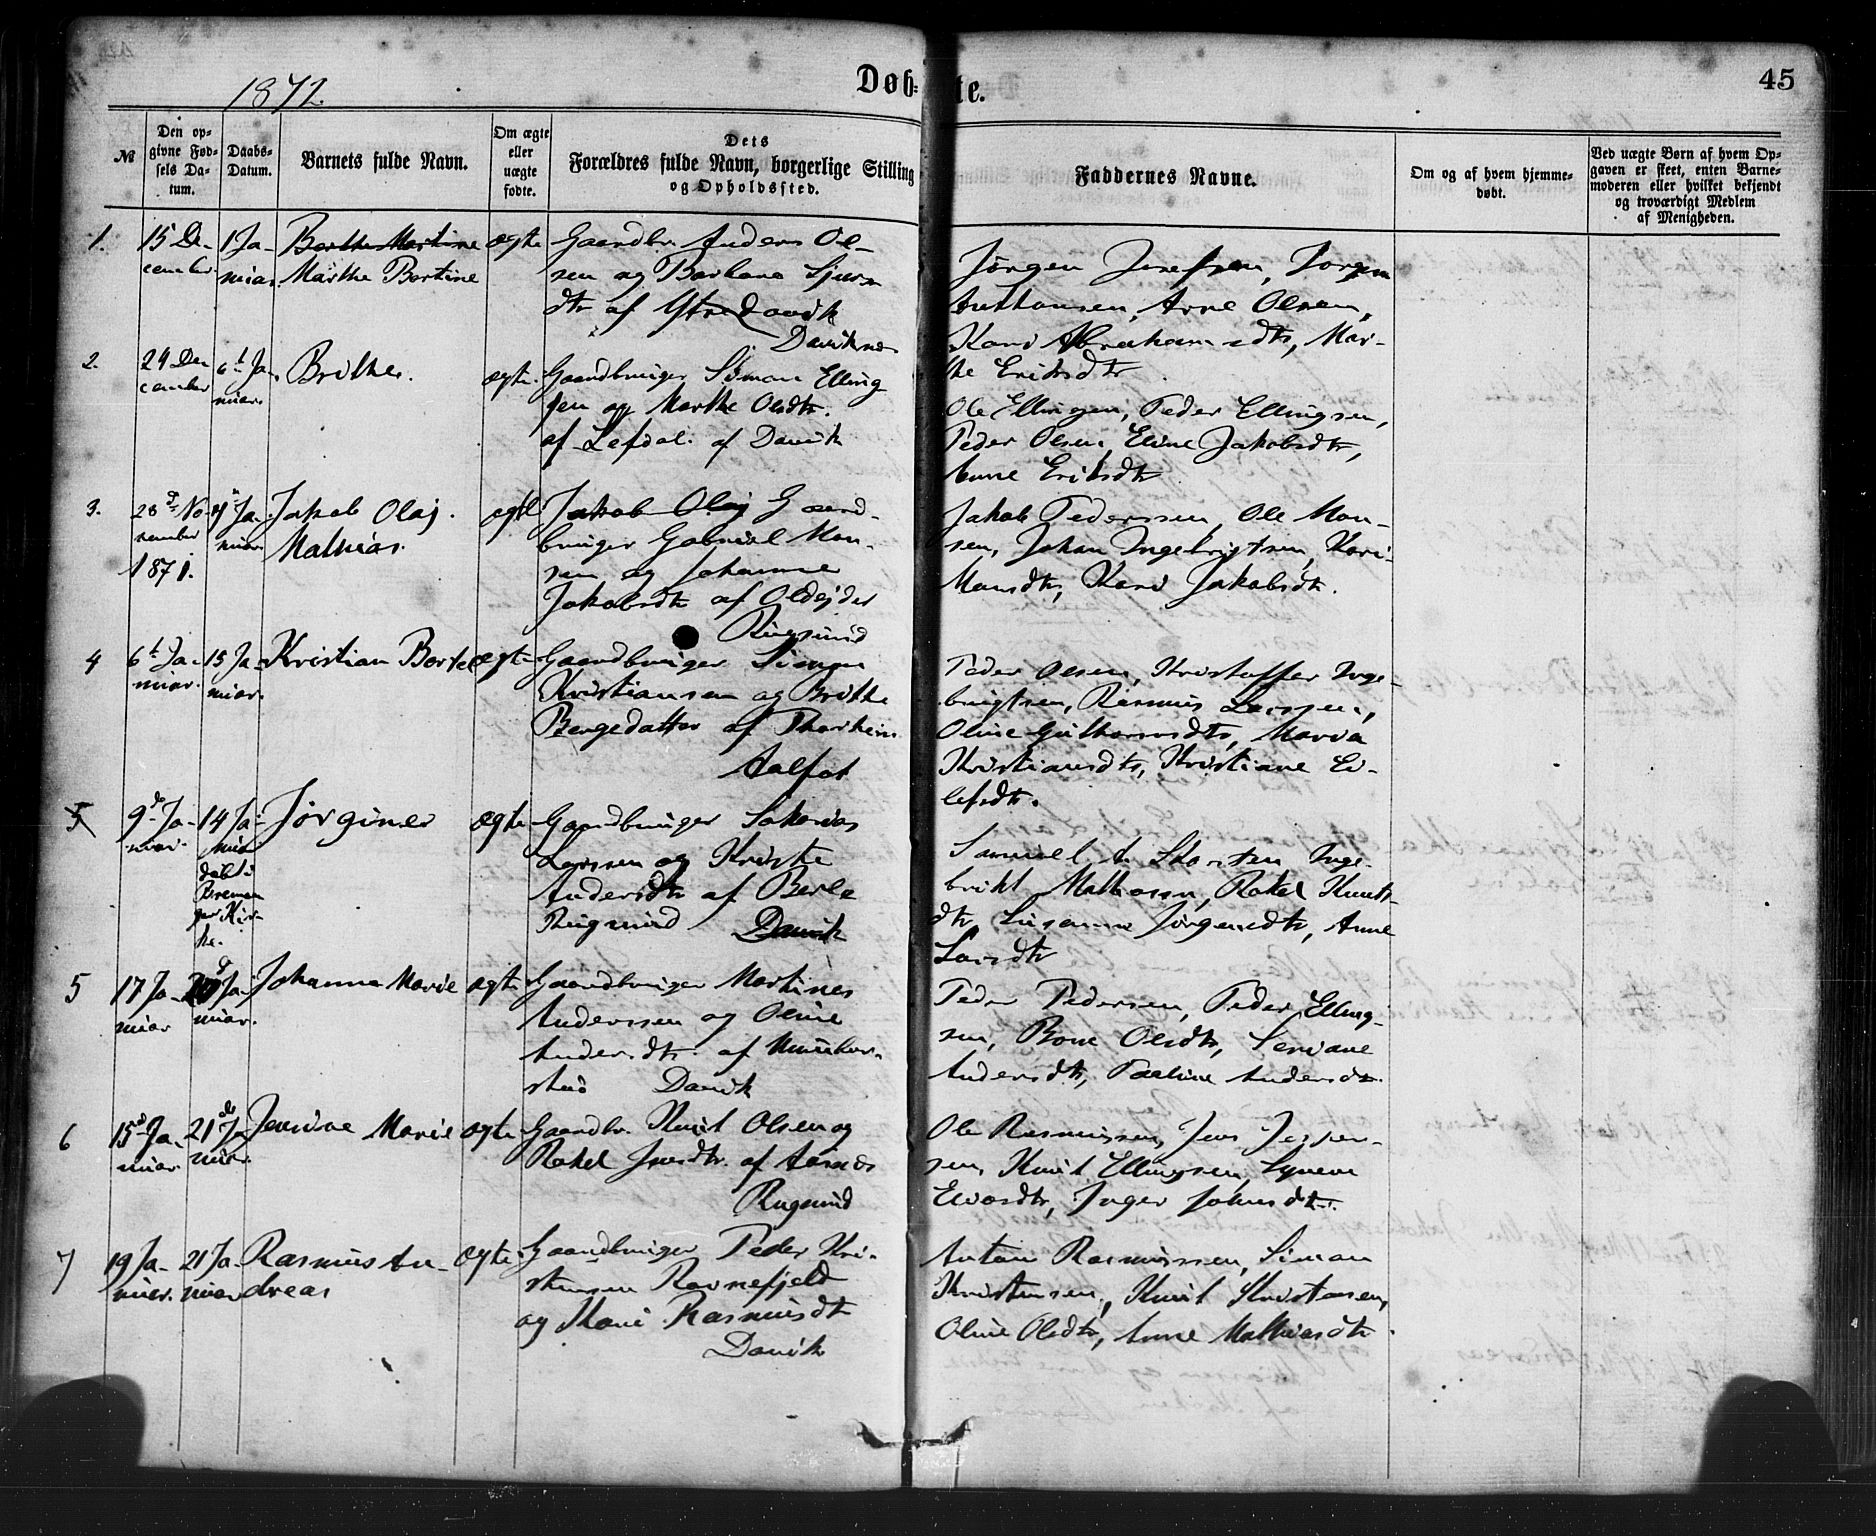 1872.
Døb-
te.
45
№
Den op-
givne Fød-
sels Da-
tum.
Daabs-
Datum.
Barnets fulde Navn.
Om ægte
eller
uægte
fødte.
Dets
Forældres fulde Navn, borgerlige Stilling
og Opholdssted.
Faddernes Navne.
Om og af hvem hjemme-
døbt.
Ved uægte Børn af hvem Op-
gaven er skeet, enten Barne-
moderen eller hvilket bekjendt
og troværdigt Medlem
af Menigheden.
1.
15 De-
cember.
1 Ja-
nuar.
Berthe Martine
Marthe Bertine
ægte
Gaardbr. Anders Ol-
sen og Barbara Sjurs
dtr af Ytre Davik
Daviknes
Jørgen Josefsen, Jørgen
Anthonsen, Arne Olsen,
Kari Abrahamsdtr, Mar-
the Eriksdtr
2.
24 De
cember
6t Ja-
nuar.
Brithe.
ægte.
Gaardbruger Simon Elling
sen og Marthe Olsdtr.
af Lefdal. af Davik
Ole Ellingsen, Peder Ellingsen,
Peder Olsen, Eline Jakobsdtr,
Anne Eriksdtr
3.
28d No-
vember
1871.
Ja-
nuar
Jakob Olaj.
Mathias.
ægte
Jakob Olaj Gaard-
bruger Gabriel Mon-
sen og Johanne
Jakobsdtr af Oldejde
Rugsund
Jakob Pederssen, Ole Mon-
sen, Johan Ingebrigtsen, Kari
Monsdtr, Kari Jakobsdtr.
4
6t Ja-
nuar.
15 Ja-
nuar.
Kristian Bertel
ægte
Gaardbruger Simon
Kristiansen og Brithe
Bergedatter af Thorheim
Aalfot
Peder Olsen, Kristoffer Inge-
brigtsen, Rasmus Larssen,
Oline Guthormsdtr, Maria
Kristiansdtr, Kristiane Ei-
lefsdtr.
5
9de Ja-
nuar.
14 Ja-
nuar
døbt i
Breman
ger Kir-
ke.
Jørgine
ægte
Gaardbruger Sakarias
Larssen og Kristie
Andersdtr af Berle
Rugsund Davik
Samuel A. Karsten Inge-
brikt Mathossn, Rakel Knuts-
dtr, Susanne Jørgensdtr, Anne
Larsdtr
5
17 Ja-
nuar
Ja-
nuar.
Johanna Marie
ægte
Gaardbruger Martines
Anderssen og Oline
Andersdtr. af
Davik
Peder Pedersen, Peder Elling-
sen, Olsdtr, Seriane
Andersdtr, Pauline Andersdtr.
6
15d Ja-
nuar
21de Ja-
nuar.
Jensine Marie
ægte
Gaardbr. Knut Olsen og
Rakel Jensdtr. af Aarnes
Rugsund
Ole Rasmussen, Jens Jesper-
sen, Knut Ellingsen,
Inger Johnsdtr.
7
19 Ja-
nuar.
21 Ja-
nuar
Rasmus An-
dreas
ægte
Gaardbruger Peder Kri-
stensen Ravnefjeld
og Kari Rasmusdtr
Davik
Anton Rasmussen, Simon
Kristensen, Knut Kristensen,
Oline Olsdtr, Anne Mathiasdtr.